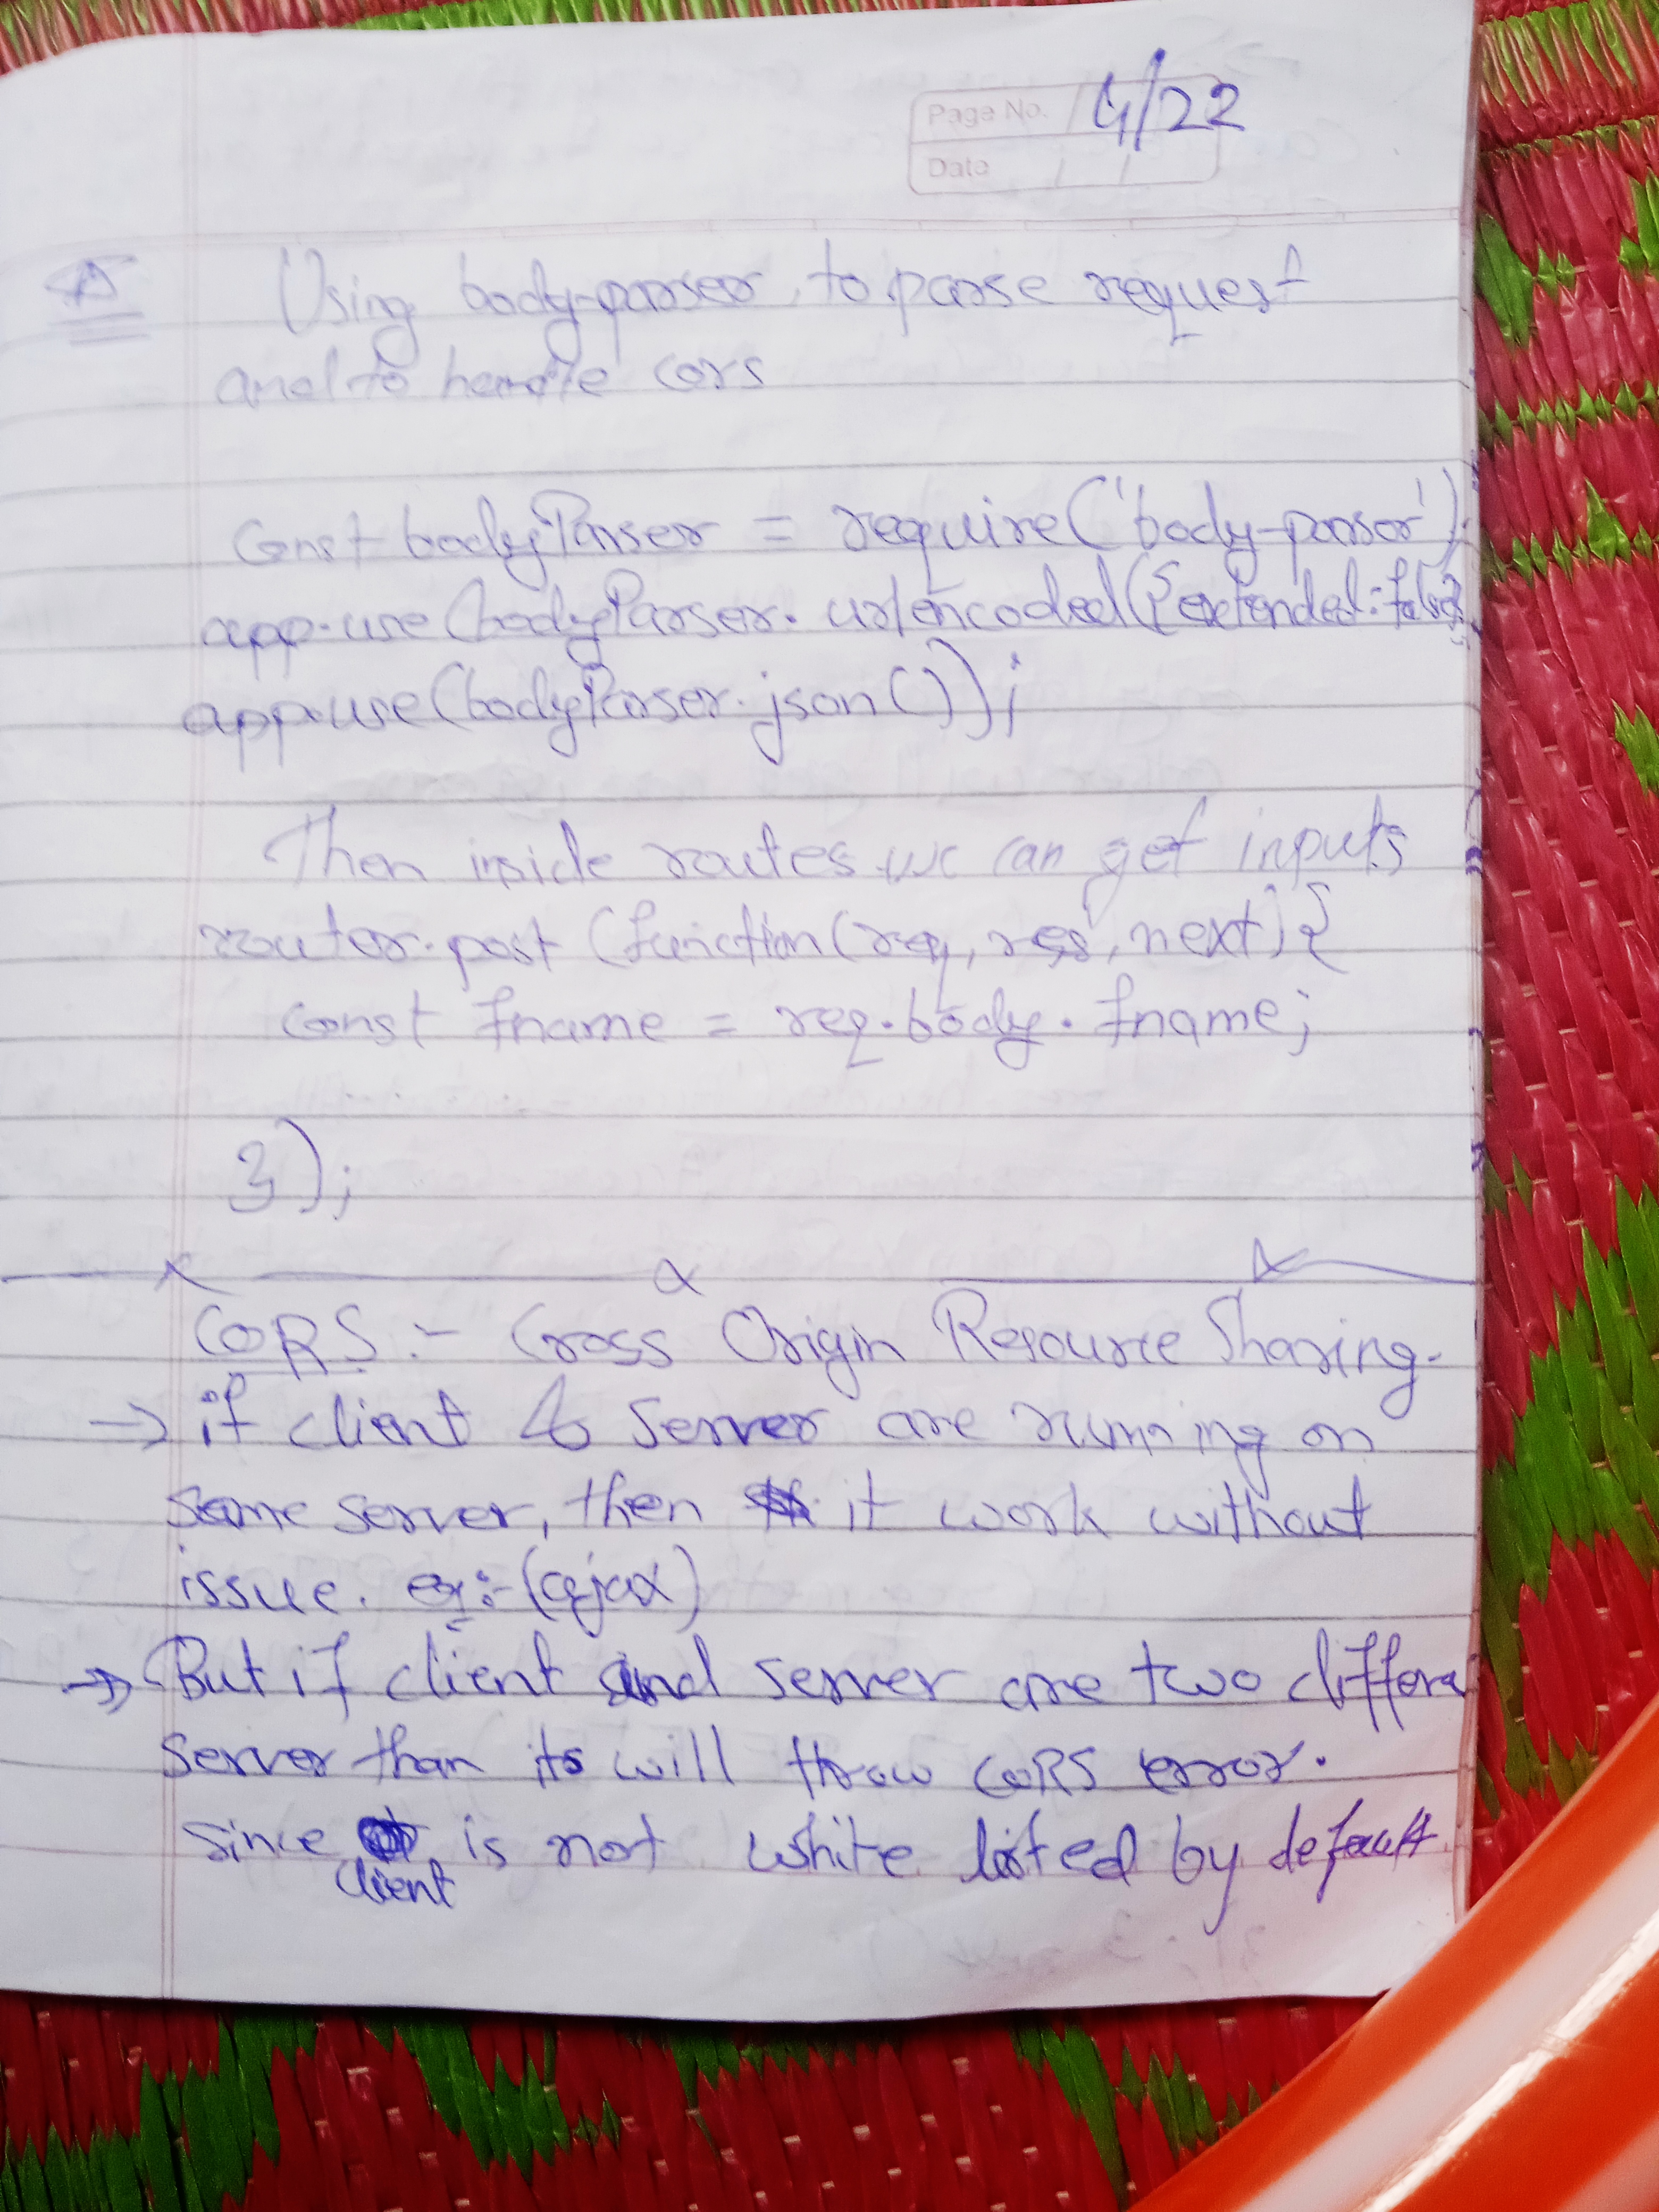 Page No. 4/22
Date / /
Using body-parser, to parse request
and to handle cors
Const bodyParser = require('body-parser');
app.use(bodyParser.urlencoded({extended:false}
app.use(bodyParser.json());
Then inside routes we can get inputs
router.post (function(req, res, next){
const fname = req.body.fname;
});
CORS :- Cross Origin Resource Sharing.
→ if client & server are running on
same server, then it work without
issue. ex:- (ajax)
→ But if client and server are two differe
server than its will throw CORS error.
since client is not white listed by default